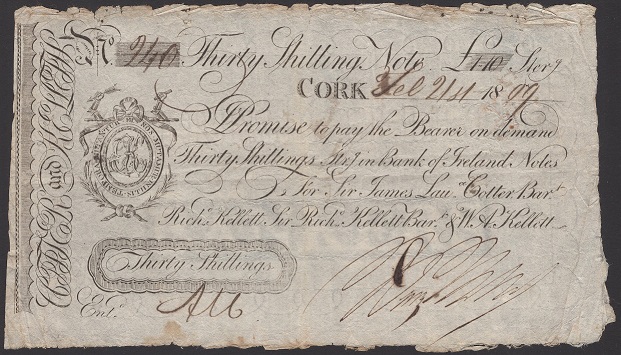 No. 240 Thirty Shilling Note £1-10 Sterg
CORK Feb 21st 1809
I Promise to pay the Bearer on demand
Thirty Shillings Str. in Bank of Ireland Notes
For Sir James Law.e Cotter Bart.
Richd. Kellett Sir Richd. Kellett Bart. & W.A. Kellett
Thirty Shillings
Entd.